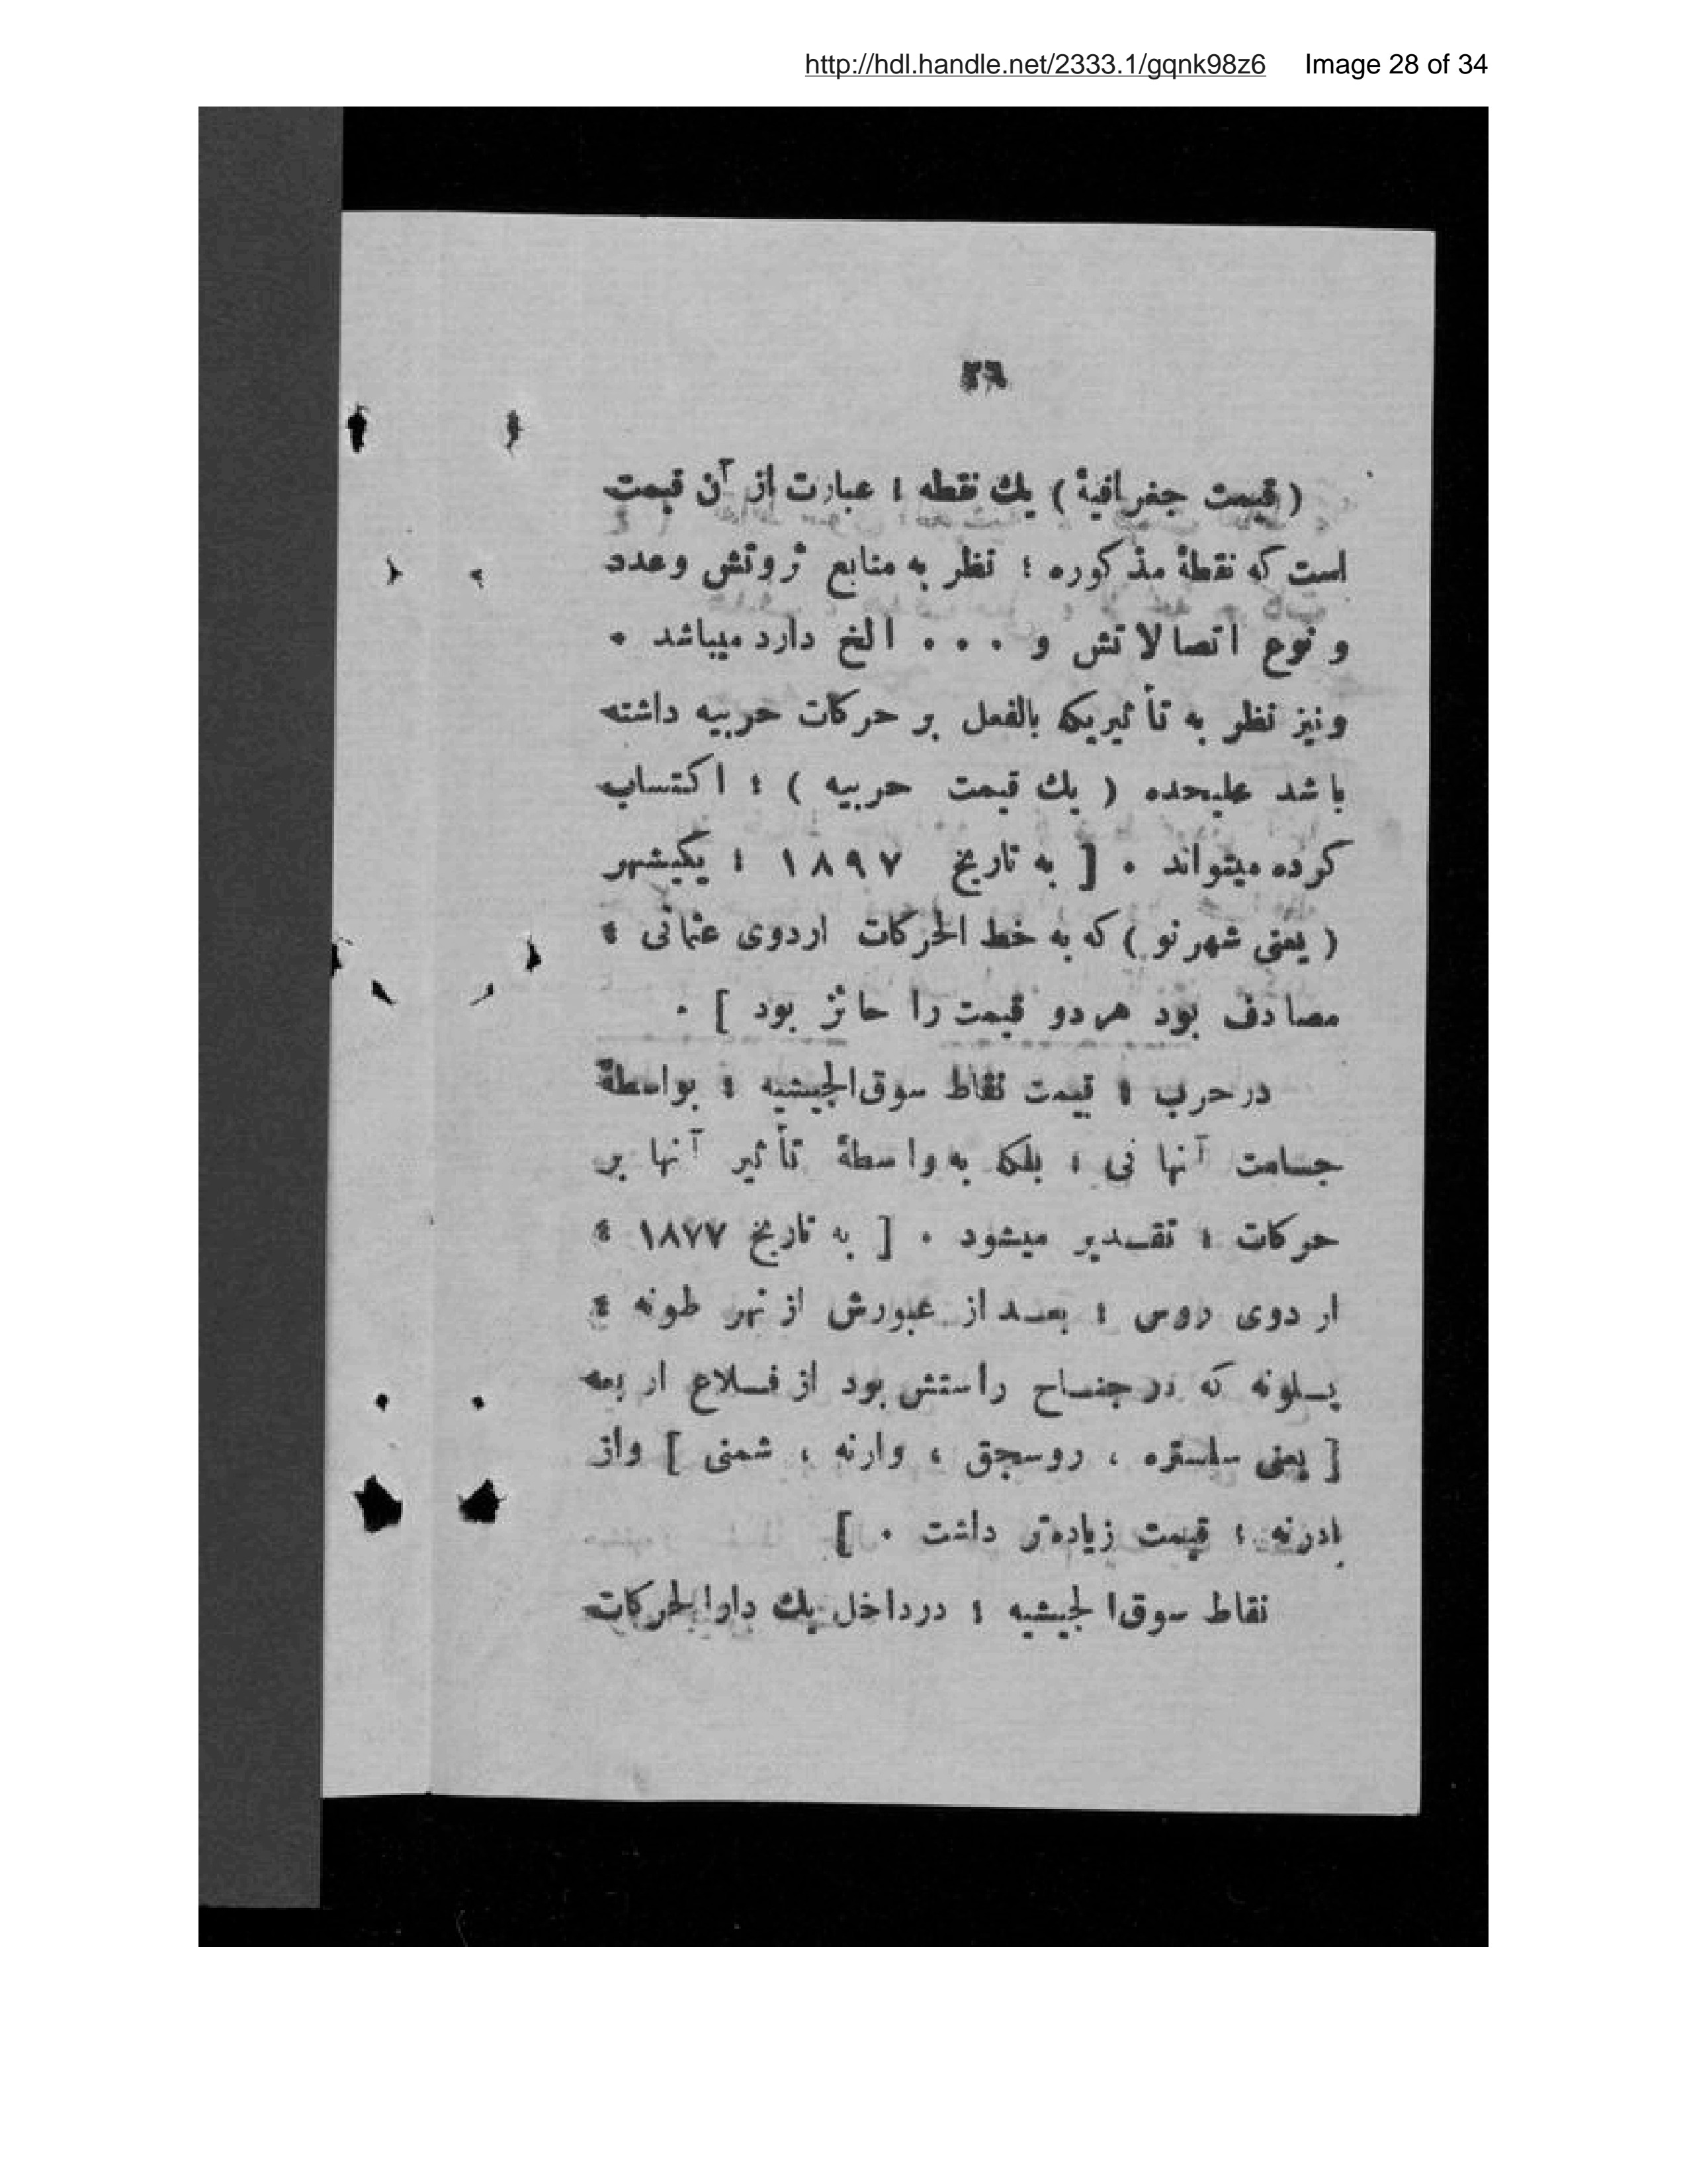 http://hdl.handle.net/2333.1/gqnk98z6 Image 28 of 34
٢٦
( قیمت جغرافیهٔ ) یك نقطه ؛ عبارت از آن قیمت
است كه نقطهٔ مذكوره ؛ نظر به منابع ثروتش وعدد
و نوع اتصالاتش و . . . الخ دارد میباشد .
ونیز نظر به تأثیریكه بالفعل بر حركات حربیه داشته
باشد علیحده ( یك قیمت حربیه ) ؛ اكتساب
كرده میتواند . [ به تاریخ ١٨٩٧ ؛ یكیشهر
( یعنی شهر نو ) كه به خط الحركات اردوی عثمانی ؛
مصادف بود هر دو قیمت را حائز بود ] .
در حرب ؛ قیمت نقاط سوق‌الجیشیه ؛ بواسطهٔ
جسامت آنها نی ؛ بلكه به واسطهٔ تأثیر آنها بر
حركات ؛ تقدیر میشود . [ به تاریخ ١٨٧٧ ؛
اردوی روس ؛ بعد از عبورش از نهر طونه ؛
پلونه كه در جناح راستش بود از قلاع اربعه
[ یعنی سلستره ، روسجق ، وارنه ، شمنی ] واز
ادرنه ؛ قیمت زیاده‌تر داشت . ]
نقاط سوق‌الجیشیه ؛ درداخل یك دارالحركات